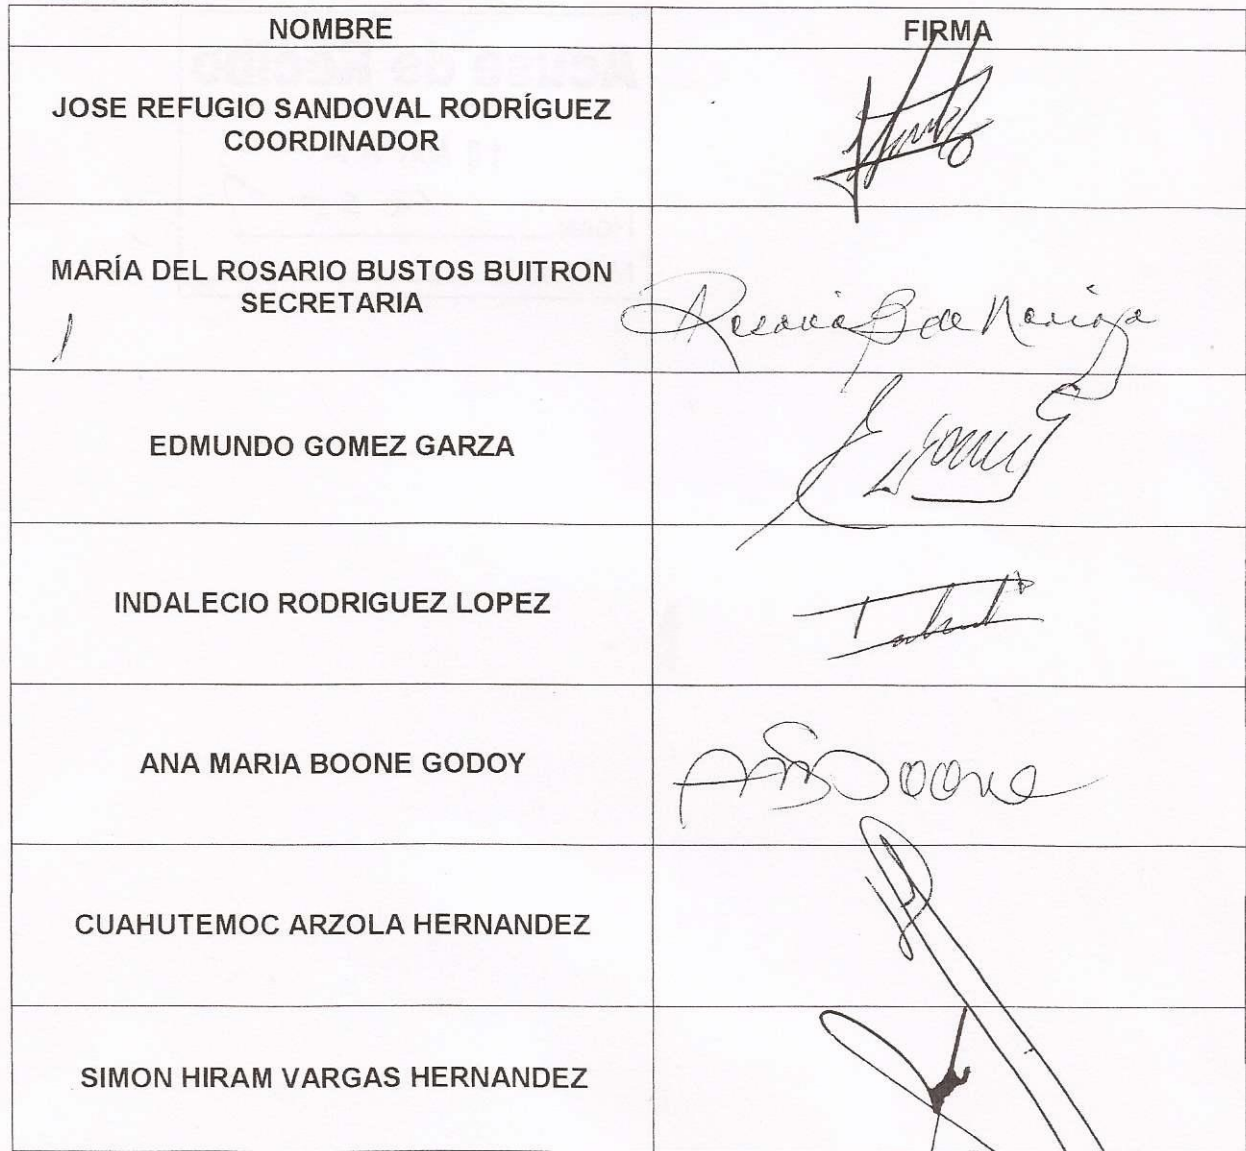 NOMBRE FIRMA
JOSE REFUGIO SANDOVAL RODRÍGUEZ
COORDINADOR
MARÍA DEL ROSARIO BUSTOS BUITRON
SECRETARIA
Rosario B de Mariога
EDMUNDO GOMEZ GARZA
E Gomez
INDALECIO RODRIGUEZ LOPEZ
ANA MARIA BOONE GODOY
Boone
CUAHUTEMOC ARZOLA HERNANDEZ
SIMON HIRAM VARGAS HERNANDEZ